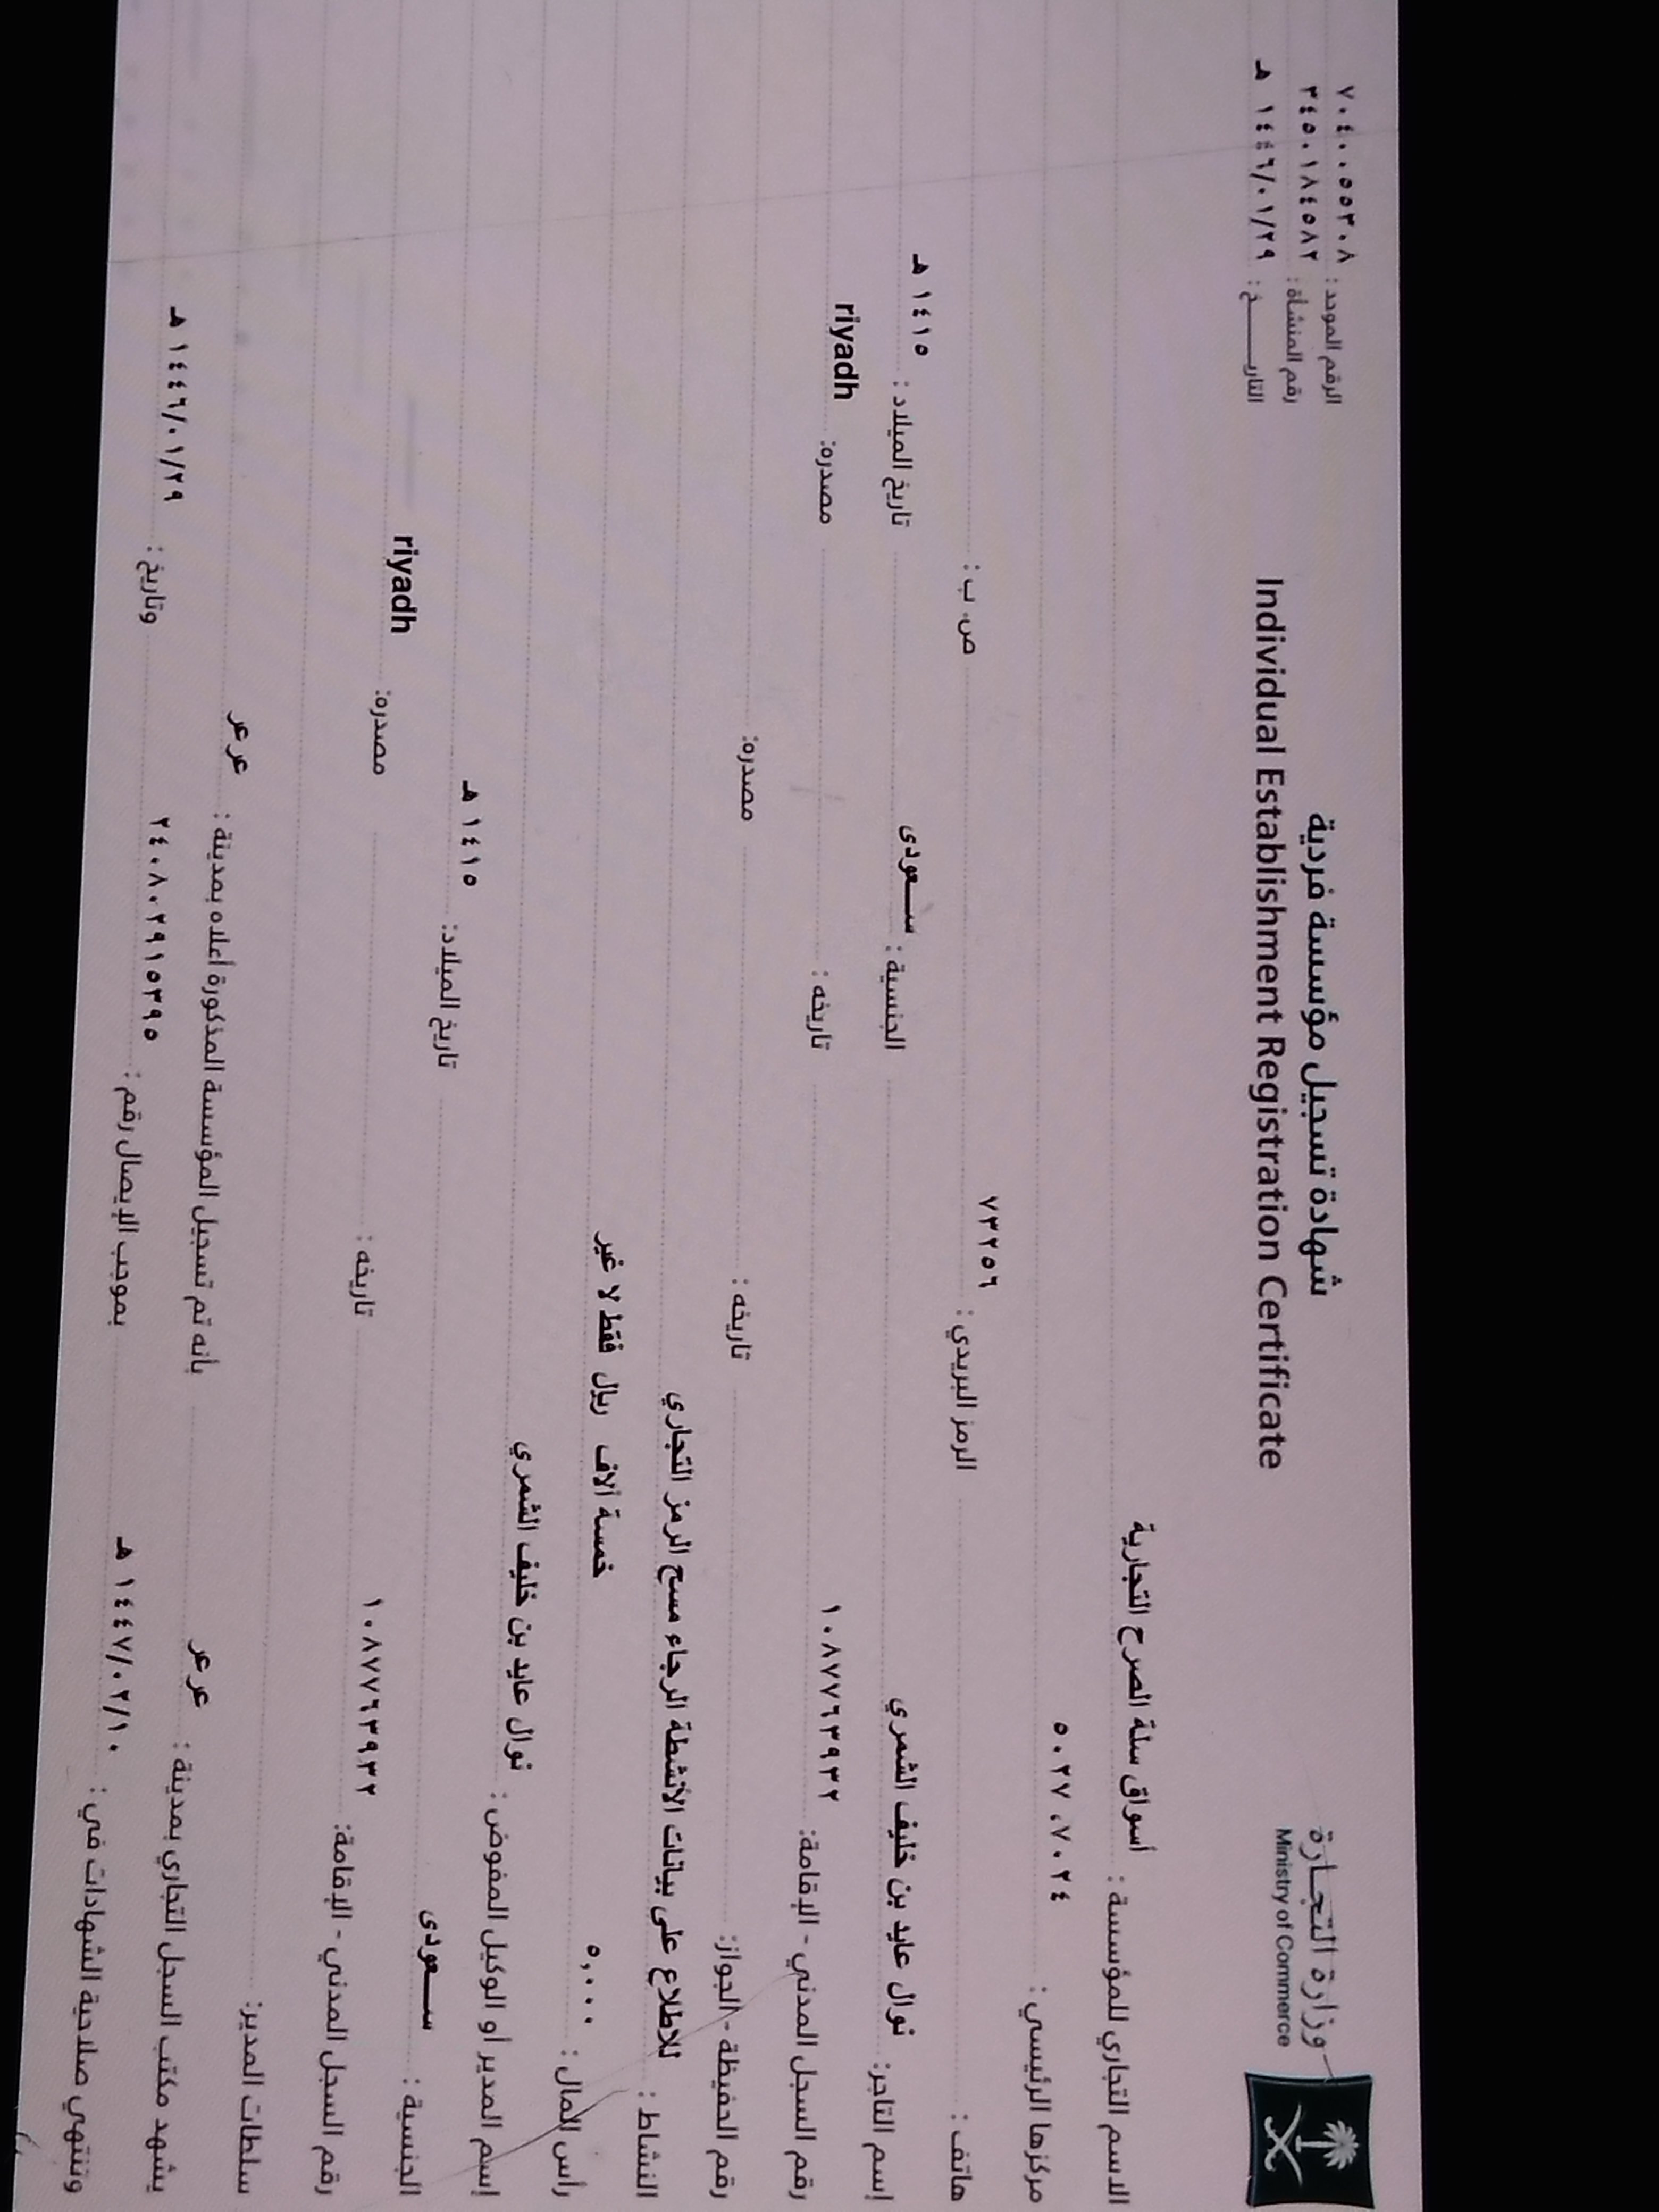 وزارة التجارة
Ministry of Commerce
شهادة تسجيل مؤسسة فردية
Individual Establishment Registration Certificate
الرقم الموحد : ٧٠٤٠٠٥٥٣٠٨
رقم المنشأة : ٣٤٥٠١٨٤٥٨٢
التاريـــــخ : ١٤٤٦/٠١/٢٩ هـ
الاسم التجاري للمؤسسة : أسواق سلة الصرح التجارية
مركزها الرئيسي : ٥٠٢٧ ،٧٠٢٤
هاتف : الرمز البريدي : ٧٣٢٥٦ ص. ب :
إسم التاجر: نوال عايد بن خليف الشمري الجنسية : ســعودى تاريخ الميلاد : ١٤١٥ هـ
رقم السجل المدني - الإقامة: ١٠٨٧٧٦٣٩٣٢ تاريخه : مصدره: riyadh
رقم الحفيظة - الجواز: تاريخه : مصدره:
النشاط : للاطلاع على بيانات الأنشطة الرجاء مسح الرمز التجاري
رأس المال : ٥,٠٠٠ خمسة آلاف ريال فقط لا غير
إسم المدير أو الوكيل المفوض : نوال عايد بن خليف الشمري
الجنسية : ســعودى تاريخ الميلاد: ١٤١٥ هـ
رقم السجل المدني - الإقامة: ١٠٨٧٧٦٣٩٣٢ تاريخه : مصدره: riyadh
سلطات المدير:
يشهد مكتب السجل التجاري بمدينة : عرعر بأنه تم تسجيل المؤسسة المذكورة أعلاه بمدينة : عرعر
وتنتهي صلاحية الشهادات في : ١٤٤٧/٠٢/١٠ هـ بموجب الإيصال رقم : ٢٤٠٨٠٢٩١٥٣٩٥ وتاريخ : ١٤٤٦/٠١/٢٩ هـ